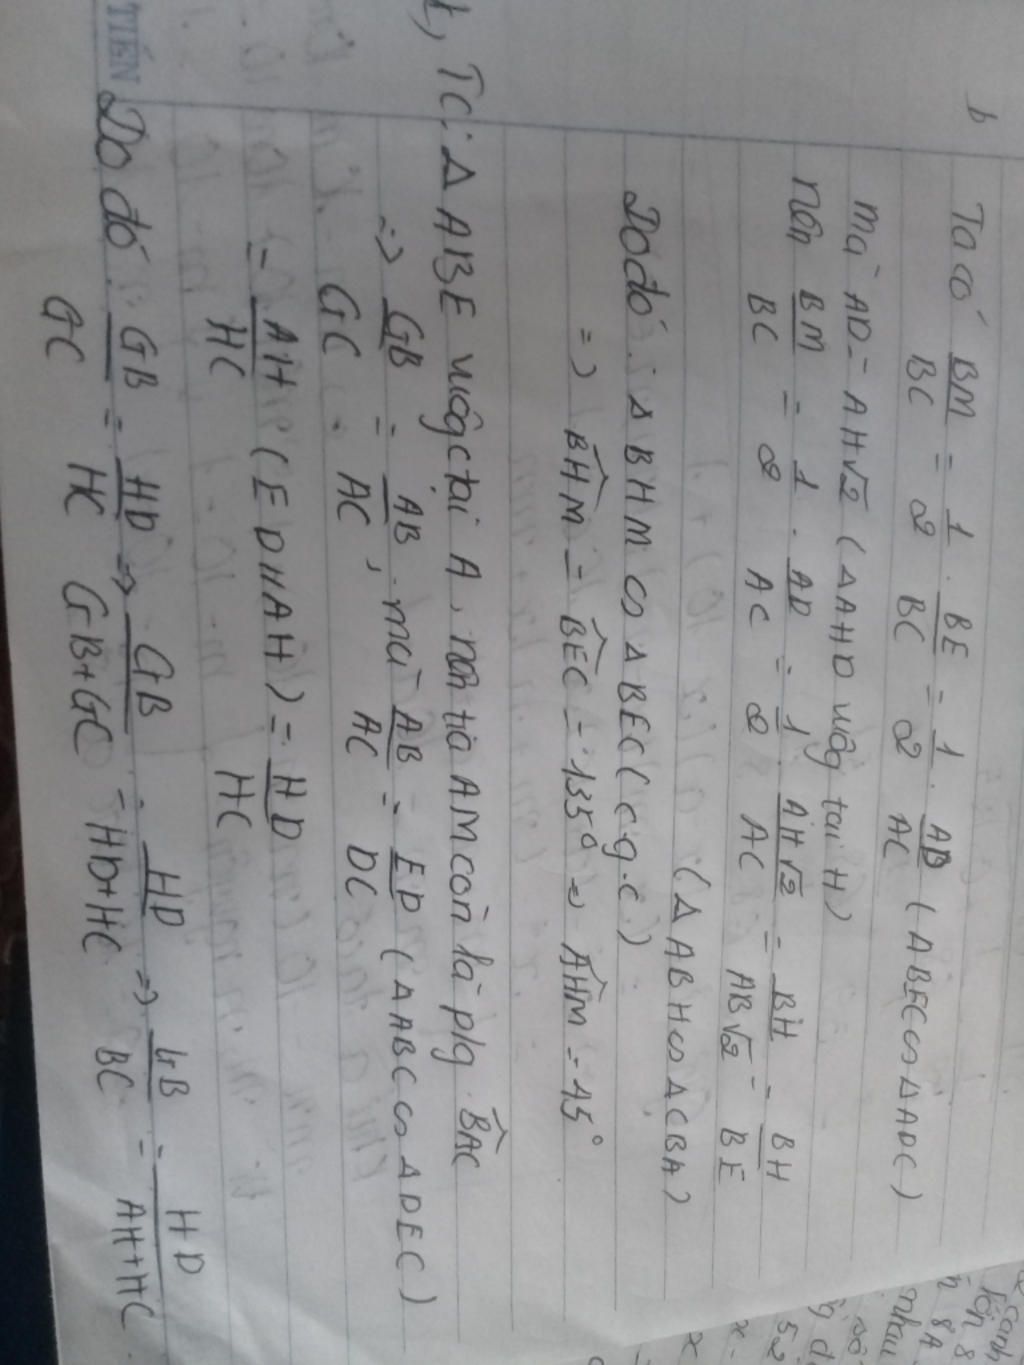 b
Ta có BM/BC = 1/2 . BE/BC = 1/2 . AD/AC (ΔBEC ∽ ΔADC)
mà AD = AH√2 (ΔAHD vuôg tại H)
nên BM/BC = 1/2 . AD/AC = 1/2 . AH√2/AC = BH/AB√2 = BH/BE
(ΔABH ∽ ΔCBA)
Do đó: ΔBHM ∽ ΔBEC (c.g.c)
=> BHM = BEC = 135° => AHM = 45°
Tc: ΔABE vuôgctại A, nên tia AM còn là p/g BAC
=> GB/GC = AB/AC, mà AB/AC = ED/DC (ΔABC ∽ ΔDEC)
= AH/HC (ED//AH) = HD/HC
Do đó GB/GC = HD/HC => GB/GB+GC = HD/HD+HC => GB/BC = HD/AH+HC
TIẾN